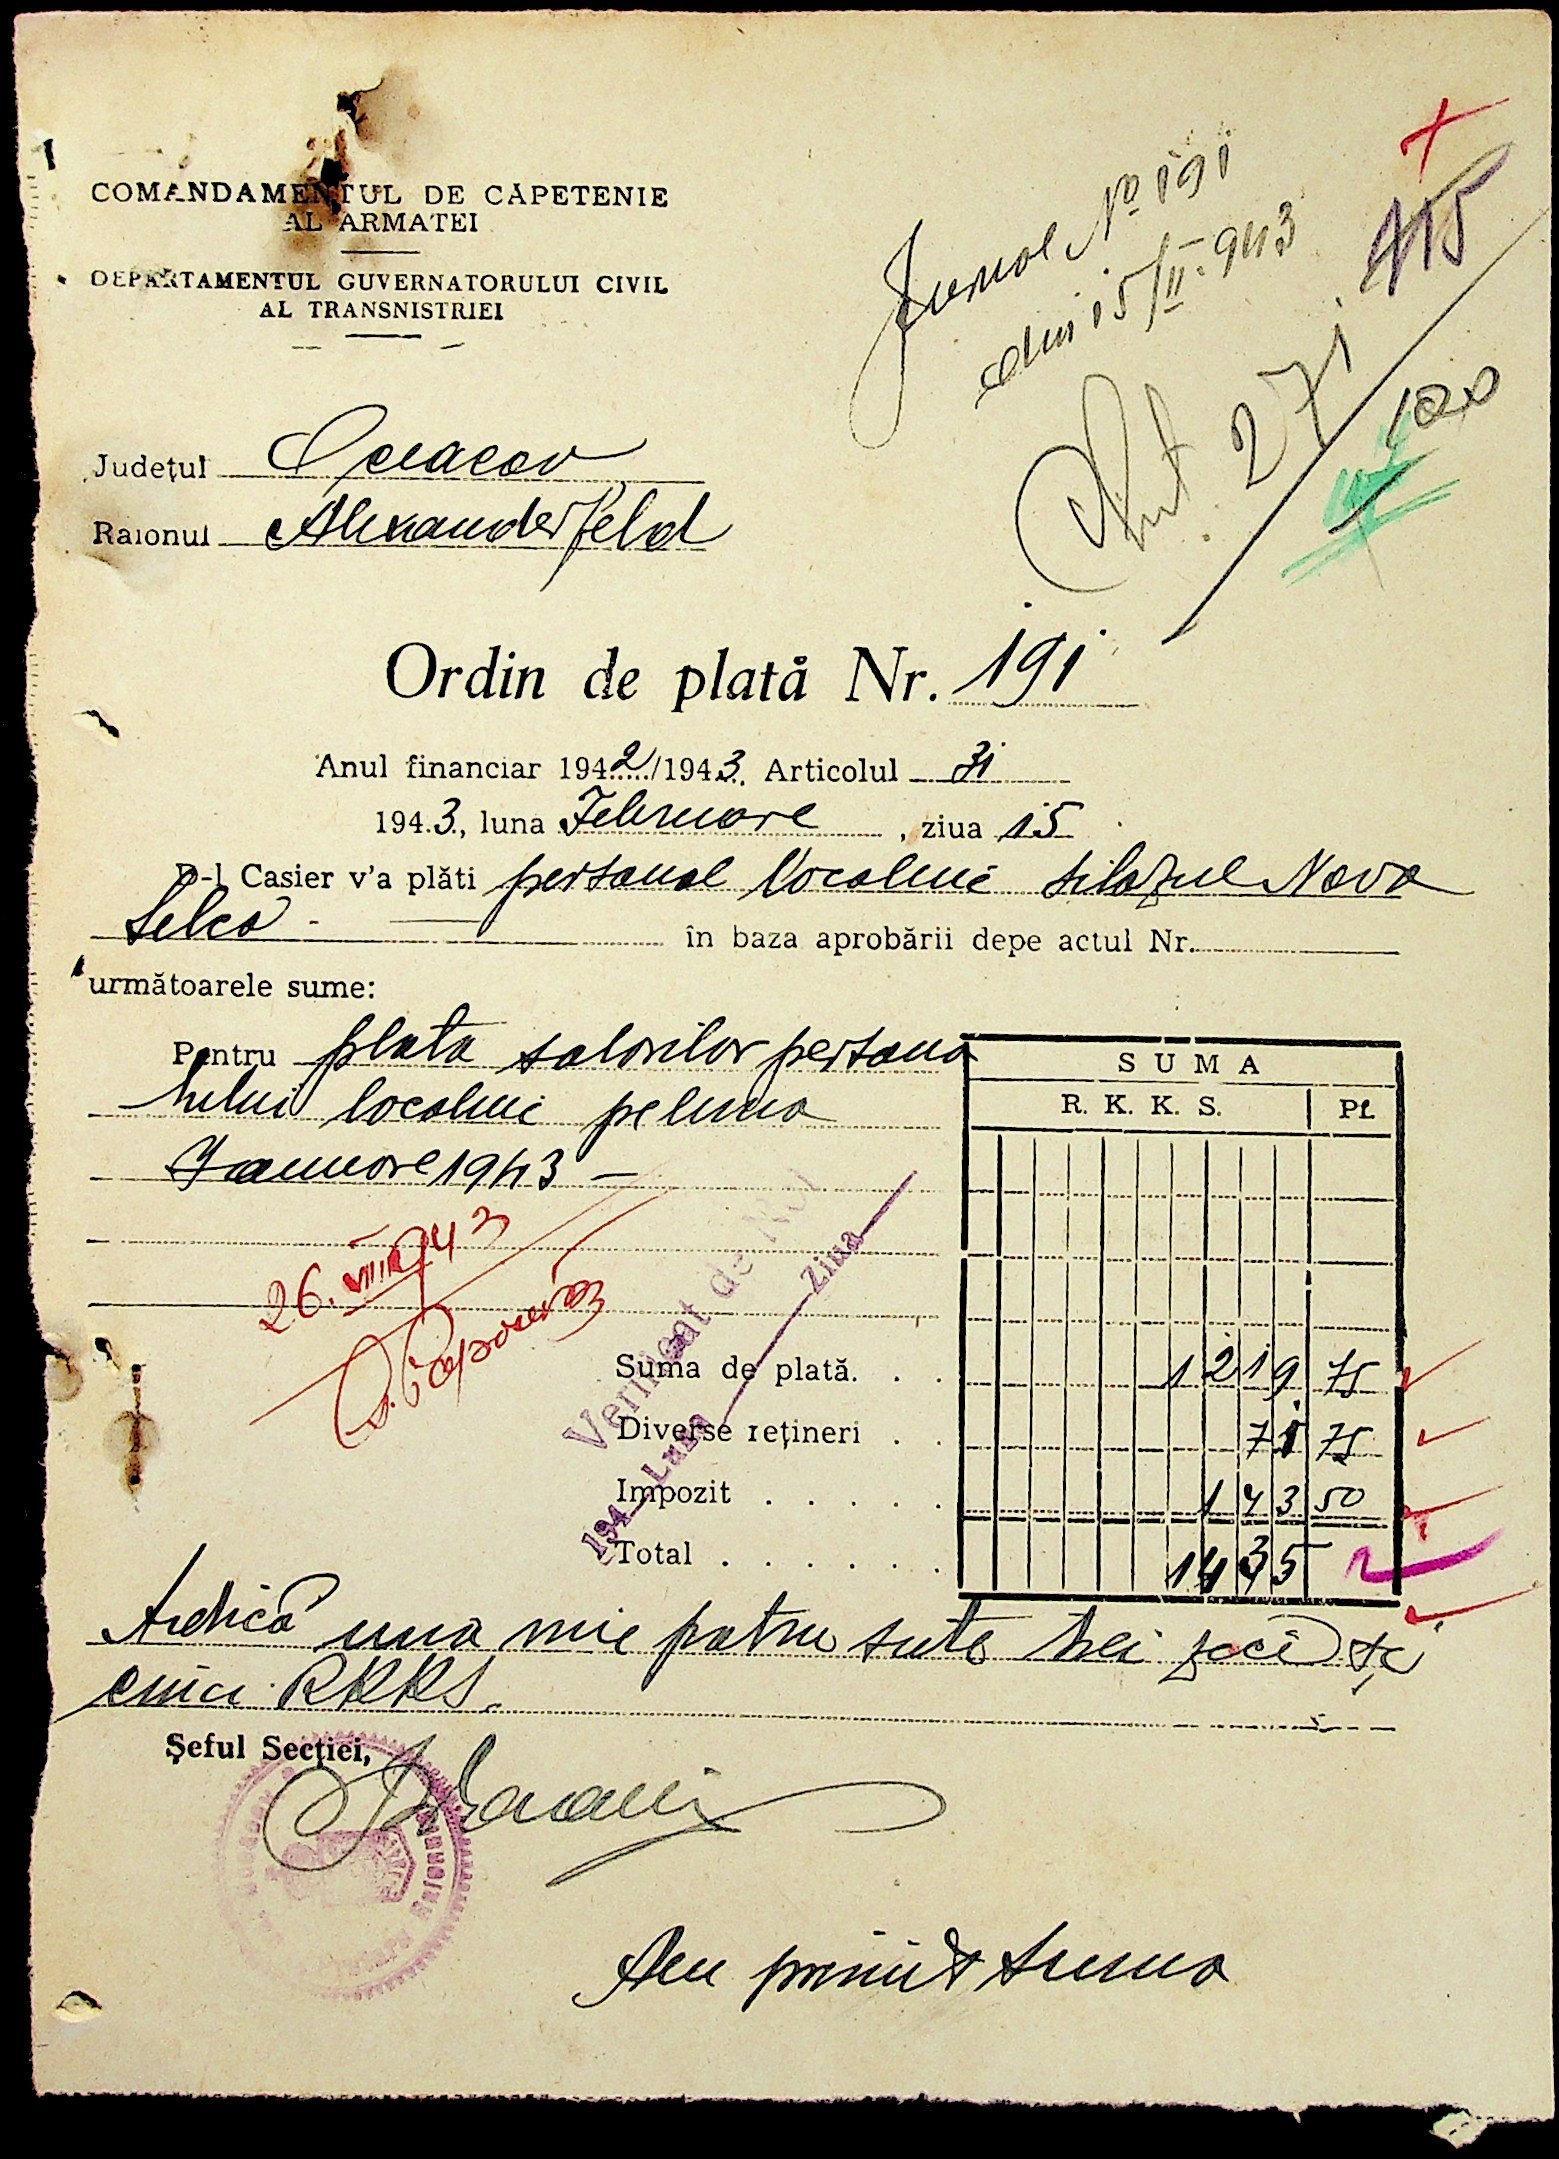 COMANDAMENTUL DE CĂPETENIE
AL ARMATEI
DEPARTAMENTUL GUVERNATORULUI CIVIL
AL TRANSNISTRIEI
Jurnal No 191
din 15/II-943
415
Art. 271
100
Județul Oceacov
Raionul Alexanderfeld
Ordin de plată Nr. 191
Anul financiar 1942/1943. Articolul 31
1943, luna Februare, ziua 15
D-l Casier v'a plăti personal localnic silozul Nova
Selca - în baza aprobării depe actul Nr.
următoarele sume:
Pentru plata salariilor persona
lului localnic pe luna
Ianuare 1943 -
SUMA
R. K. K. S. Pf.
26.VIII 943
Verificat de Noi
194 Luna Ziua
Suma de plată. . . 1219 75
Diverse rețineri . . 71 75
Impozit . . . . . 143 50
Total . . . . . . 1435
Adică una mie patru sute trei zeci și
cinci RKKS.
Șeful Secției,
Am primit suma